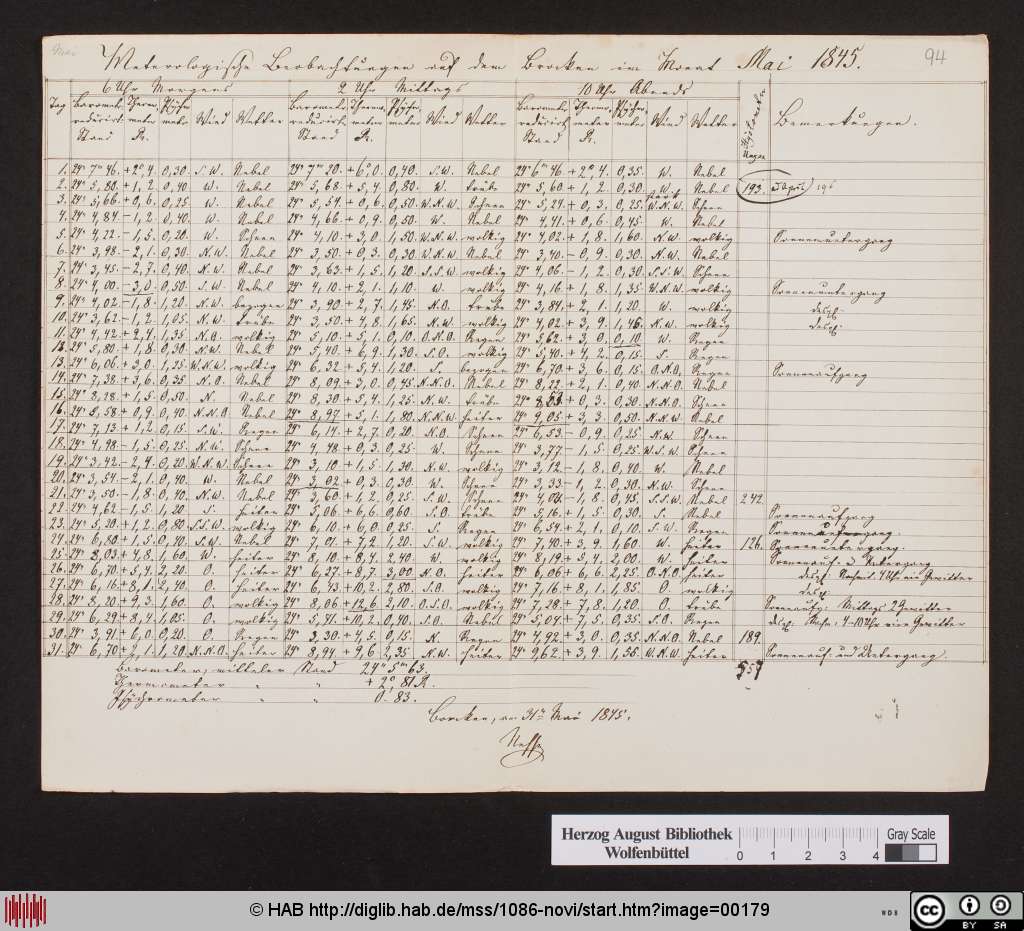 Mai
Meterologische Beobachtungen auf dem Brocken im Monat Mai 1845.
94
6 Uhr Morgens 2 Uhr Mittags 10 Uhr Abends
Tag Barometer reducirt. Stand Thermometer R. Psÿchrometer Wind Wetter Barometer reducirt. Stand Thermometer R. Psÿchrometer Wind Wetter Barometer reducirt. Stand Thermometer R. Psÿchrometer Wind Wetter Bemerkungen.
1. 24" 7"' 46. +2°,4. 0,30. S.W. Nebel 24" 7"' 30. +6°,0. 0,40. S.W. Nebel 24" 6"' 46 +2°4. 0,35. W. Nebel
2. 24" 5,80. +1,2. 0,40 W. Nebel 24" 5,68. +5,4. 0,80. W. trübe 24" 5,60 +1,2. 0,30. W. Nebel 193.
3. 24" 5,66. +0,6. 0,25 W. Nebel 24" 5,54. +0,6. 0,50. W.N.W. Schnee 24" 5,24. +0,3. 0,25. W.N.W. Schnee
4. 24" 4,84. -1,2. 0,40. W. Nebel 24" 4,66. +0,9. 0,50. W. Nebel 24" 4,41. +0,6. 0,45. W. Nebel
5. 24" 4,22. -1,5. 0,20. W. Schnee 24" 4,10. +3,0. 1,50. W.N.W. wolkig 24" 4,02. +1,8. 1,60. N.W. wolkig Sonnenuntergang
6. 24" 3,98. -2,1. 0,30. N.W. Nebel 24" 3,50. +0,3. 0,30. W.N.W. Nebel 24" 3,40. -0,9. 0,30. N.W. Nebel
7. 24" 3,45. -2,7. 0,40. N.W. Nebel 24" 3,63. +1,5. 1,20. S.S.W. wolkig 24" 4,06. -1,2. 0,30. S.S.W. Schnee
8. 24" 4,00. -3,0. 0,50. S.W. Nebel 24" 4,10. +2,1. 1,10. W. wolkig 24" 4,16. +1,8. 1,35. W.N.W. wolkig Sonnenuntergang
9. 24" 4,02. -1,8. 1,20. N.W. bezogen 24" 3,90. +2,7. 1,45. N.O. trübe 24" 3,84. +2,1. 1,20. W. wolkig desgl.
10. 24" 3,62. -1,2. 1,05. N.W. trübe 24" 3,50. +4,8. 1,65. N.W. wolkig 24" 4,02. +3,9. 1,46. N.W. wolkig desgl.
11. 24" 4,42. +2,4. 1,35. N.O. wolkig 24" 5,10. +5,1. 0,10. O.N.O. Regen 24" 5,62. +3,0. 0,10. W. Regen
12. 24" 5,80. +1,8. 0,30. N.W. Nebel 24" 5,40. +6,9. 1,30. S.O. wolkig 24" 5,40. +4,2. 0,15. S. Regen
13. 24" 6,06. +3,0. 1,25. W.N.W. wolkig 24" 6,32. +5,4. 1,20. S. bezogen 24" 6,70. +3,6. 0,15. O.N.O. Regen Sonnenaufgang
14. 24" 7,38. +3,6. 0,35 N.O. Nebel 24" 8,09. +3,0. 0,45. N.N.O. Nebel 24" 8,22. +2,1. 0,40 N.N.O. Nebel
15. 24" 8,28. +1,5. 0,50. N. Nebel 24" 8,30. +5,4. 1,25. N.W. trübe 24" +0,3. 0,30. N.N.O. Schnee
16. 24" 8,58. +0,9. 0,40. N.N.O. Nebel 24" 8,97. +5,1. 1,80. N.N.W. heiter 24" 9,05. +3,3. 0,50. N.N.W. Nebel
17. 24" 7,13. +1,2. 0,15. S.W. Regen 24" 6,14. +2,7. 0,20. N.O. Schnee 24" 6,53. -0,9. 0,25 N.W. Schnee
18. 24" 4,98. -1,5. 0,25. N.W. Schnee 24" 4,48. +0,3. 0,25. W. Schnee 24" 3,77. -1,5. 0,25. W.S.W. Schnee
19. 24" 3,42. -2,4. 0,20. W.N.W. Schnee 24" 3,10. +1,5. 1,30. N.W. wolkig 24" 3,12. -1,8. 0,40. W. Nebel
20. 24" 3,54. -2,1. 0,40. W. Nebel 24" 3,02. +0,3. 0,30. W. Schnee 24" 3,33. -1,2. 0,30. N.W. Schnee
21. 24" 3,50. -1,8. 0,40. N.W. Nebel 24" 3,60. +1,2. 0,25. S.W. Schnee 24" 4,04. -1,8. 0,45. S.S.W. Nebel 242.
22. 24" 4,62. -1,5. 1,20. S. heiter 24" 5,06. +6,6. 0,60. S.O. trübe 24" 5,16. +1,5. 0,30. S. Nebel Sonnenaufgang
23. 24" 5,20. +1,2. 0,80. S.S.W. wolkig 24" 6,10. +6,0. 0,25. S. Regen 24" 6,54. +2,1. 0,10. S.W. Regen Sonnenaufgang.
24. 24" 6,80. +1,5. 0,40. S.W. Nebel 24" 7,01. +7,2. 1,20. S.W. wolkig 24" 7,40. +3,9. 1,60. W. heiter 126. Sonnenuntergang.
25. 24" 8,03. +4,8. 1,60. W. heiter 24" 8,10. +8,4. 2,40. W. wolkig 24" 8,19. +5,4. 2,00. W. heiter Sonnenauf- u. Untergang
26. 24" 6,70. +5,4. 2,20. O. heiter 24" 6,27. +8,7. 3,00. N.O. heiter 24" 6,06. +6,6. 2,25. O.N.O. heiter desgl. Nachmit. 4 Uhr ein Gewitter
27. 24" 6,16. +8,1. 2,40. O. heiter 24" 6,43. +10,2. 2,80. S.O. wolkig 24" 7,16. +8,1. 1,85. O. wolkig desgl.
28. 24" 8,20. +9,3. 1,60. O. wolkig 24" 8,06. +12,6. 2,10. O.S.O. wolkig 24" 7,28. +7,8. 1,20. O. trübe Sonnenaufg: Mittags 2 Gewitter
29. 24" 6,29. +8,4. 1,05. O. wolkig 24" 5,41. +10,2. 0,40. S.O. Nebel 24" 5,04. +7,5. 0,35. S.O. Regen desgl: Nachm: 4-10 Uhr vier Gewitter
30. 24" 3,91. +6,0. 0,20. O. Regen 24" 3,30. +4,5. 0,15. N. Regen 24" 4,92. +3,0. 0,35. N.N.O. Nebel 189.
31. 24" 6,70. +2,1. 1,20. N.N.O. heiter 24" 8,94. +9,6. 2,35. N.W. heiter 24" 9,62. +3,9. 1,56. W.N.W. heiter Sonnenauf- und Untergang.
Barometer, mittler Stand 24" 5"' 63.
Thermometer " " +2°, 81 R.
Psÿchrometer " " 0. 83.
557
Brocken, den 31ten Mai 1845.
Nesse
Herzog August Bibliothek
Wolfenbüttel
0 1 2 3 4
Gray Scale
© HAB http://diglib.hab.de/mss/1086-novi/start.htm?image=00179
WDB
cc BY SA